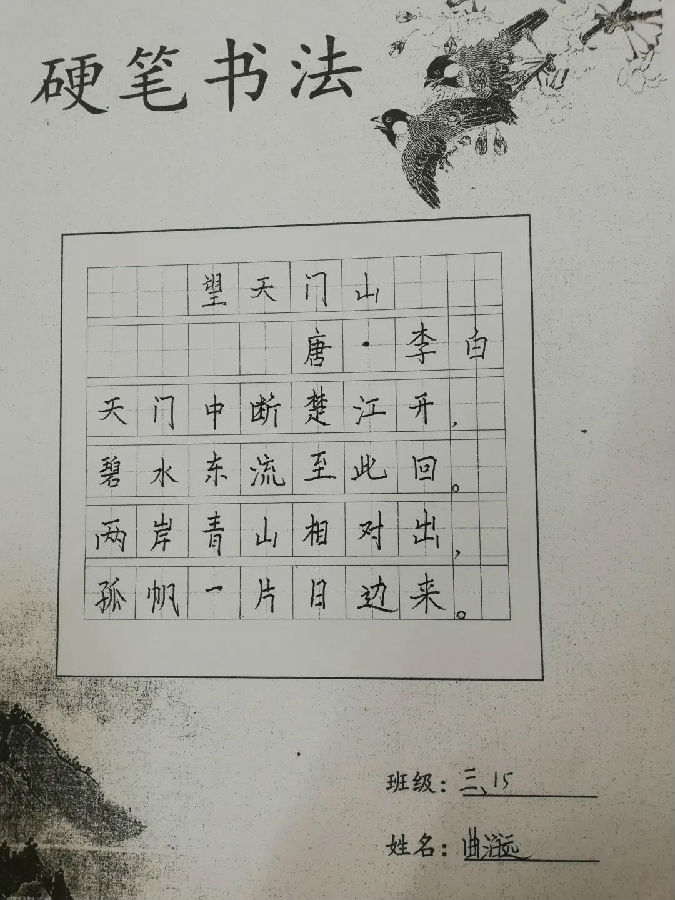 硬笔书法
望天门山
唐·李白
天门中断楚江开,
碧水东流至此回。
两岸青山相对出,
孤帆一片日边来。
班级:三、15
姓名:曲润远